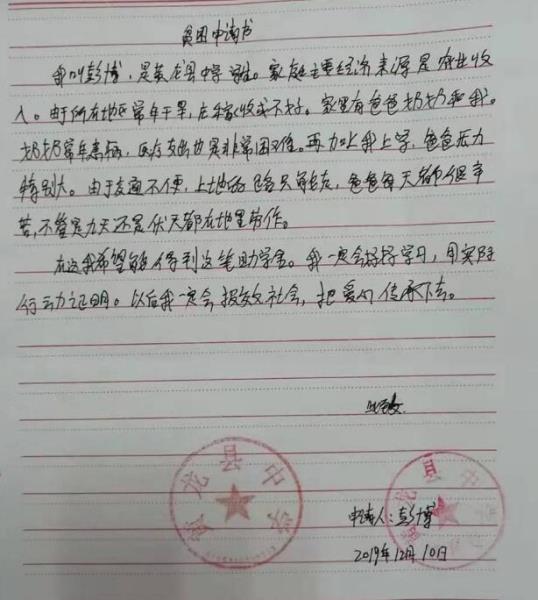 贫困申请书
我叫彭博，是黄龙县中学学生。家庭主要经济来源是农业收
入。由于所在地区常年干旱，庄稼收成不好。家里有爸爸奶奶和我。
奶奶常年患病，医疗支出也是非常困难。再加上我上学，爸爸压力
特别大。由于交通不便，上地的路只有走，爸爸每天都很辛
苦，不管是九天还是伏天都在地里劳作。
在这我希望能够得到这笔助学金。我一定会好好学习，用实际
行动证明。以后我一定会报效社会，把爱心传承下去。
此致
黄龙县中学
黄龙县中学
申请人：彭博
2019年12月10日